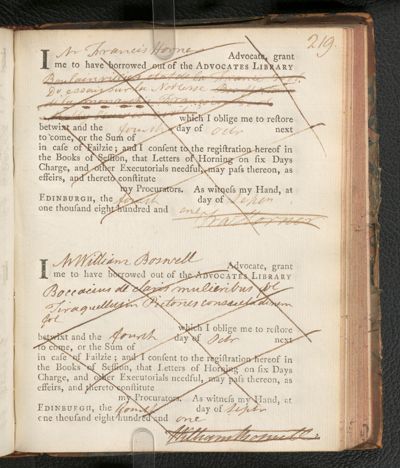 219.
I Mr Francis Horner Advocate, grant
me to have borrowed out of the ADVOCATES LIBRARY
Boulainvilliers etat de la France
Do. essais sur la Noblesse
which I oblige me to restore
betwixt and the fourth day of Octr next
to come, or the Sum of
in case of Failzie; and I consent to the registration hereof in
the Books of Session, that Letters of Horning on six Days
Charge, and other Executorials needful, may pass thereon, as
effeirs, and thereto constitute
my Procurators. As witness my Hand, at
EDINBURGH, the fourth day of
one thousand eight hundred and one
Fra: Horner
I Mr William Boswell Advocate, grant
me to have borrowed out of the ADVOCATES LIBRARY
Boccacius de claris mulieribus
Tiraquellus in Pictones consuetudinem
which I oblige me to restore
betwixt and the fourth day of Octr next
to come, or the Sum of
in case of Failzie; and I consent to the registration hereof in
the Books of Session, that Letters of Horning on six Days
Charge, and other Executorials needful, may pass thereon, as
effeirs, and thereto constitute
my Procurators. As witness my Hand, at
EDINBURGH, the fourth day of Septr
one thousand eight hundred and one
William Boswell